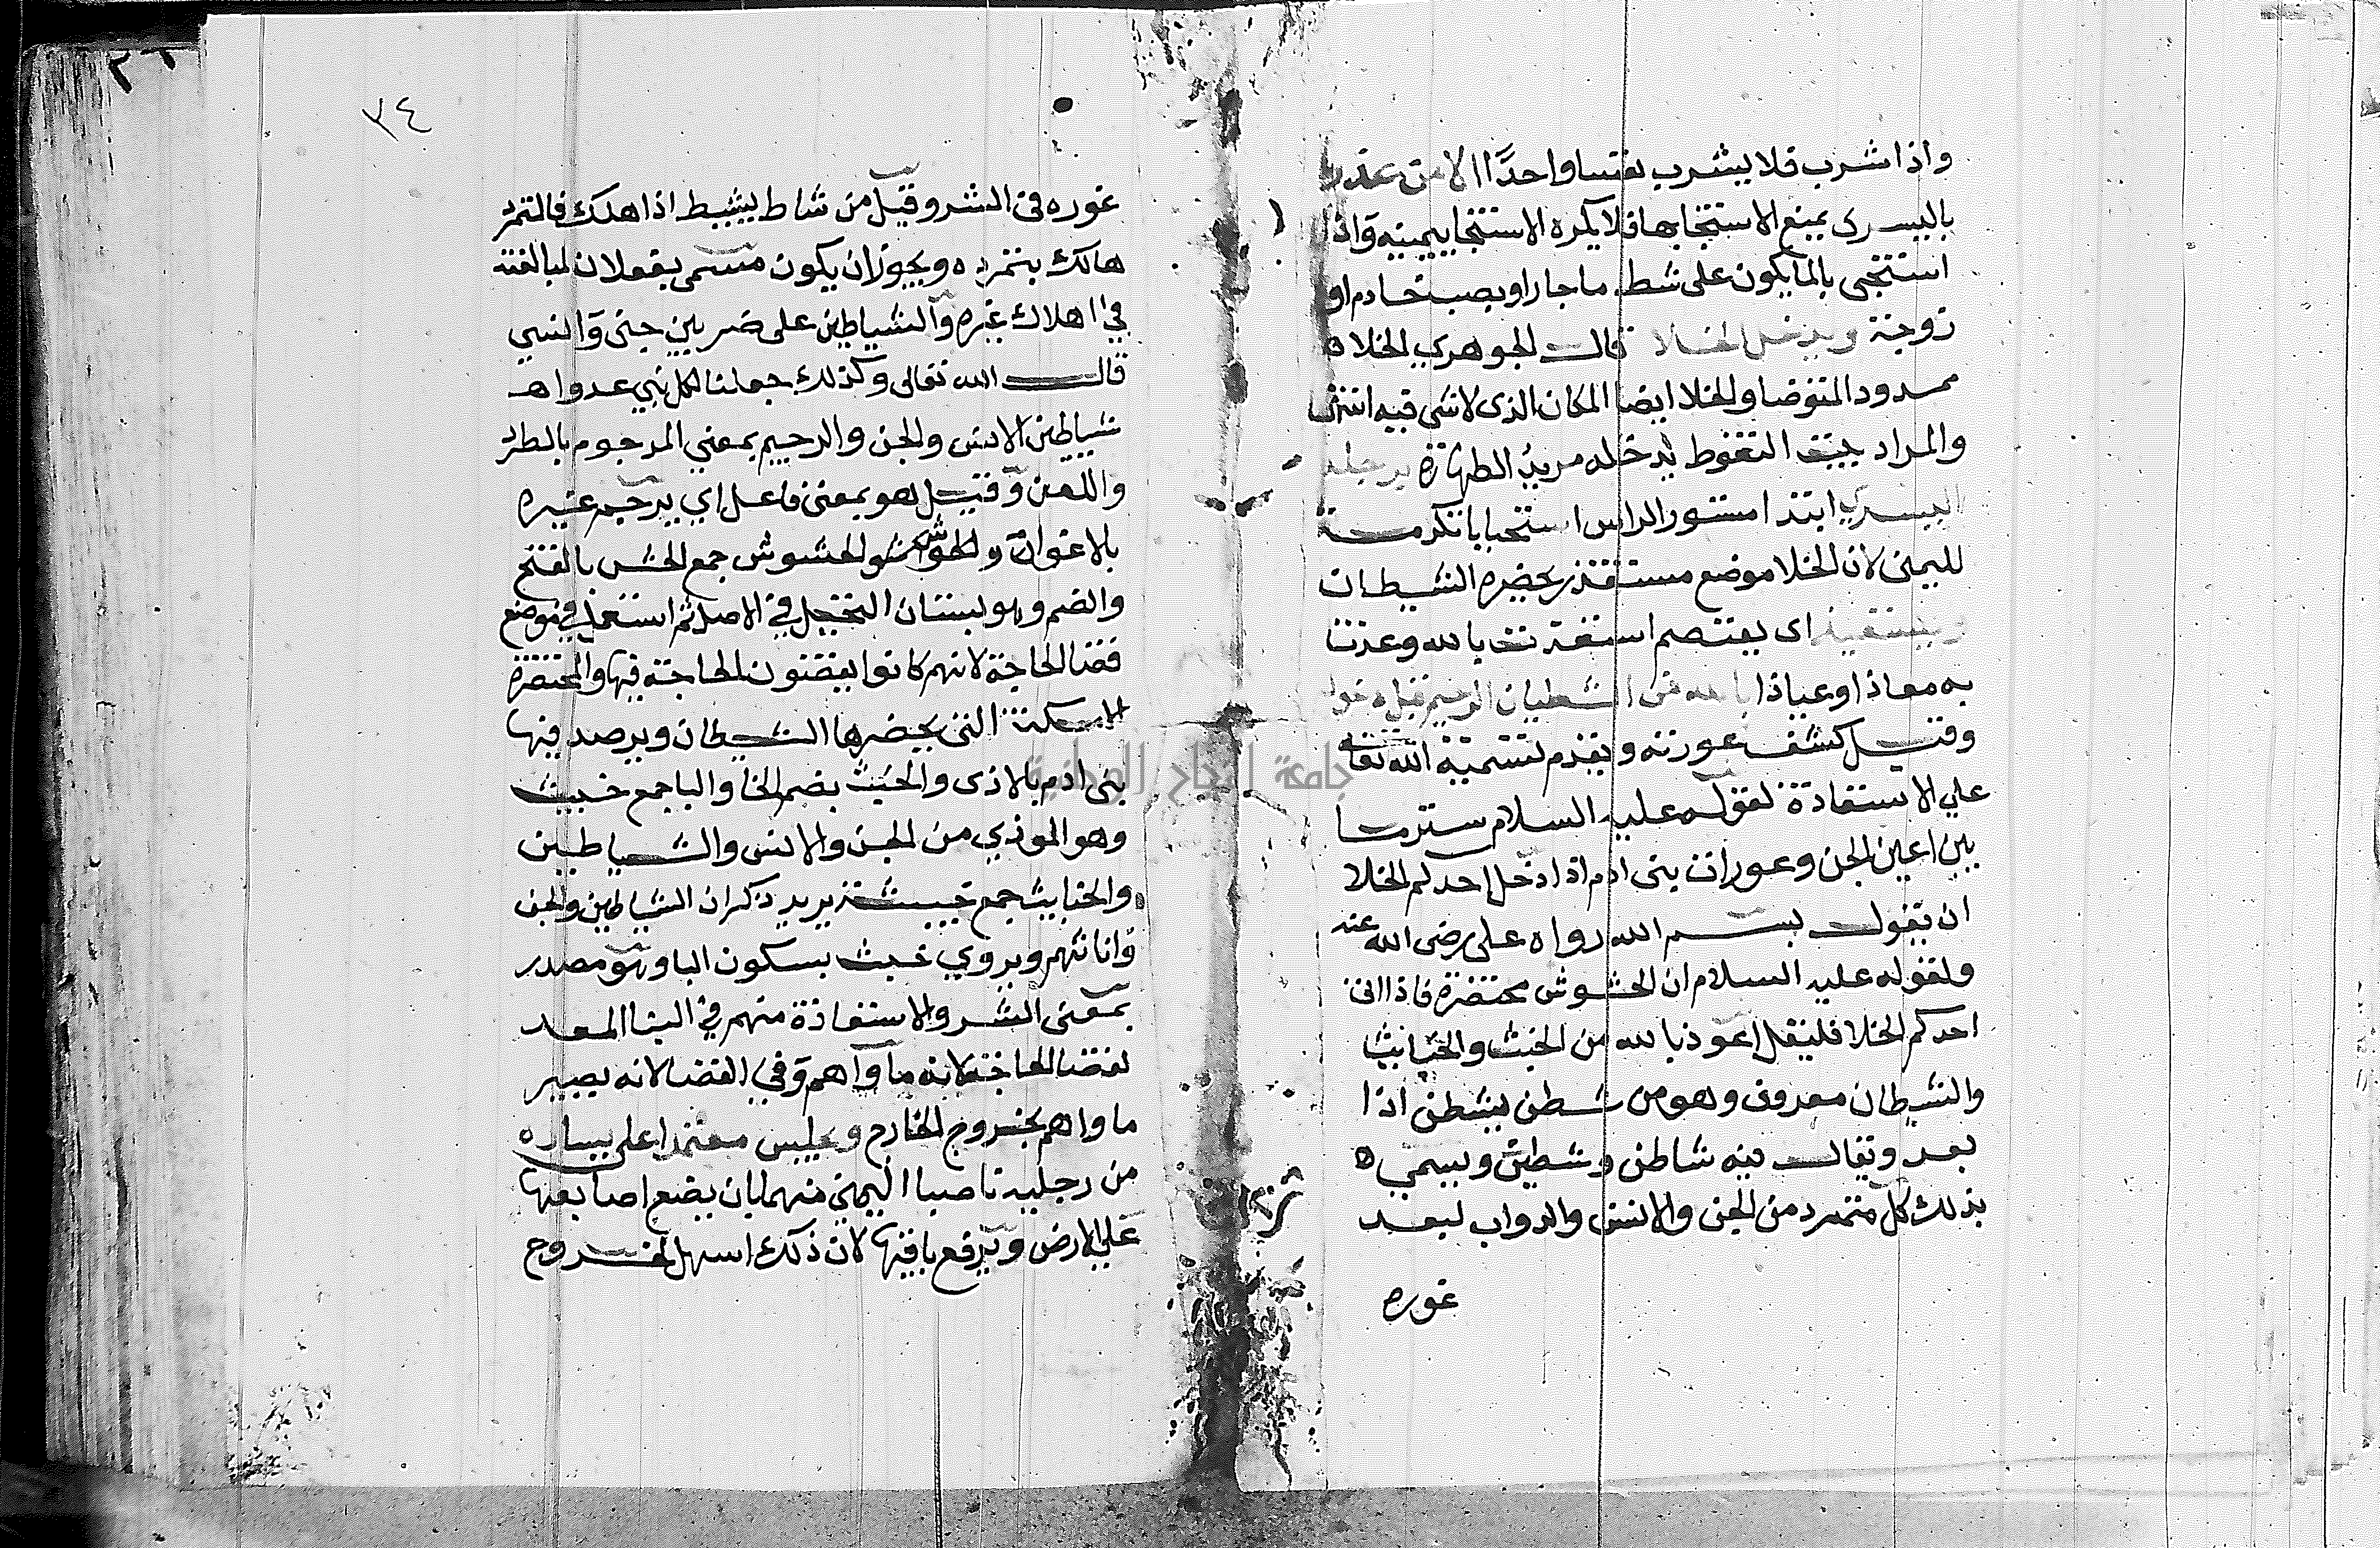 واذا شرب فلا يشرب نفسا واحدًا الا من عذر
باليسرى يمنع الاستنجا بها فلا يكره الاستنجا بيمينه واذا
استنجى بالما يكون على شط ما جار او يصب خادم او
زوجة ويدخل الخلا قال الجوهري الخلا
ممدود المتوضا والخلا ايضا المكان الذى لا شى فيه انتهى
والمراد بيت التغوط يدخله مريد الطهارة برجله
اليسري ابتدا مستور الراس استحبابا تكرمة
لليمنى لان الخلا موضع مستقذر يحضره الشيطان
ويستعيذ اى يعتصم استعذت بالله وعذت
به معاذا وعياذا بالله من الشيطان الرجيم قبل دخوله
وقبل كشف عورته ويقدم تسمية الله تعا
علي الاستعاذة لقوله عليه السلام ستر ما
بين اعين الجن وعورات بنى ادم اذا دخل احدكم الخلا
ان يقول بسم الله رواه على رضى الله عنه
ولقوله عليه السلام ان الحشوش محتضرة فاذا اتى
احدكم الخلا فليقل اعوذ بالله من الخبث والخبايث
والشيطان معروف وهو من شطن يشطن اذا
بعد ويقال فيه شاطن وشطين ويسمي
بذلك كل متمرد من الجن والانس والدواب لبعد
غوره
٣٤
غوره فى الشر وقيل من شاط يشيط اذا هلك فالمتمرد
هالك بتمرده ويجوز ان يكون مسمى بفعلان لمبالغته
في اهلاك غيره والشياطين على ضربين جنى وانسي
قال الله تعالى وكذلك جعلنا لكل نبي عدوا
شياطين الانس والجن والرجيم بمعني المرجوم بالطرد
واللعن وقيل هو بمعنى فاعل اي يرجم غيره
بالاغوا والحشوش جمع الحش بالفتح
والضم وهو بستان النخيل في الاصل ثم استعمل في موضع
قضا الحاجة لانهم كانوا يقضون الحاجة فيها والمحتضرة
الامكنة التى يحضرها الشيطان ويرصد فيها
بنى ادم بالاذى والخبث بضم الخا والبا جمع خبيث
وهو الموذي من الجن والانس والشياطين
والخبايث جمع خبيثة يريد ذكران الشياطين والجن
واناثهم ويروي خبث بسكون البا وهو مصدر
بمعنى الشر والاستعاذة منهم في البنا المعد
لقضا الحاجة لانه ماواهم وفي الفضا لانه يصير
ماواهم بخروج الخارج ويجلس معتمدا على يساره
من رجليه ناصبا اليمنى منهما بان يضع اصابعها
علي الارض ويرفع باقيها لان ذلك اسهل لخروج
جامعة النجاح الوطنية